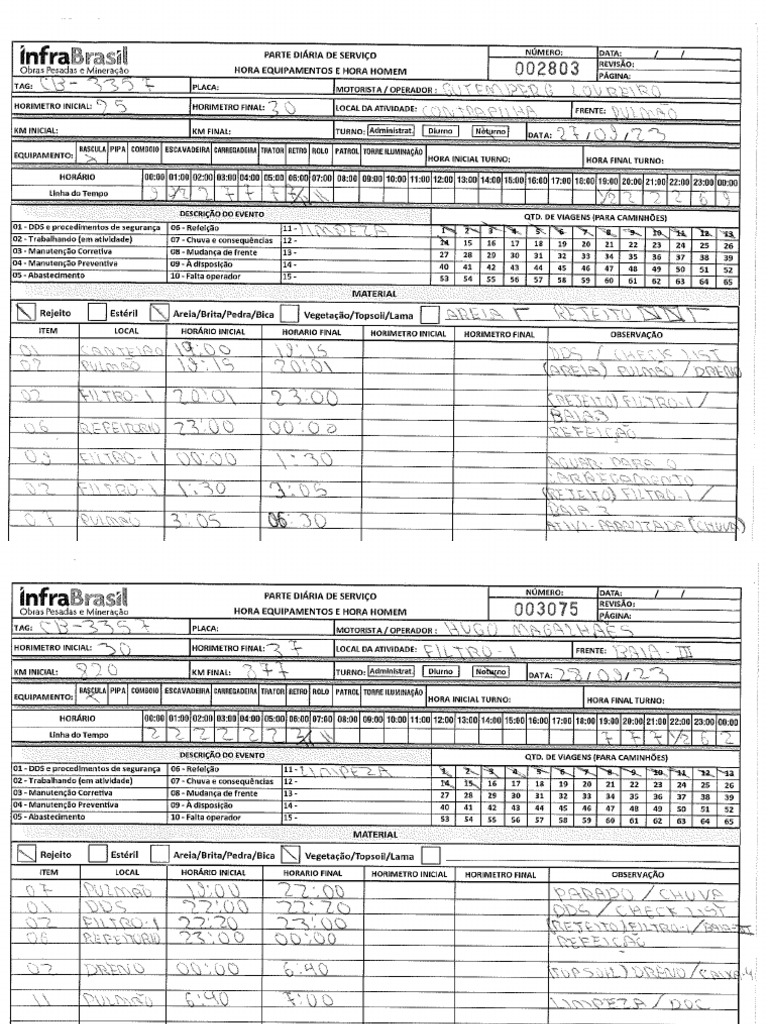 infraBrasil
Obras Pesadas e Mineração
PARTE DIÁRIA DE SERVIÇO
HORA EQUIPAMENTOS E HORA HOMEM
NÚMERO:
002803
DATA: / /
REVISÃO:
PÁGINA:
TAG: CB-3357 PLACA: MOTORISTA / OPERADOR: GUTEMBERG LOUREIRO
HORIMETRO INICIAL: 25 HORIMETRO FINAL: 30 LOCAL DA ATIVIDADE: CONTRAPILHA FRENTE: PULMÃO
KM INICIAL: KM FINAL: TURNO: Administrat. Diurno Noturno DATA: 27/09/23
EQUIPAMENTO: BASCULA PIPA COMBOIO ESCAVADEIRA CARREGADEIRA TRATOR RETRO ROLO PATROL TORRE ILUMINAÇÃO HORA INICIAL TURNO: HORA FINAL TURNO:
HORÁRIO 00:00 01:00 02:00 03:00 04:00 05:00 06:00 07:00 08:00 09:00 10:00 11:00 12:00 13:00 14:00 15:00 16:00 17:00 18:00 19:00 20:00 21:00 22:00 23:00 00:00
Linha do Tempo 9 9/2 2 7 7 7 1/2 2 2 6 9
DESCRIÇÃO DO EVENTO QTD. DE VIAGENS (PARA CAMINHÕES)
01 - DDS e procedimentos de segurança 06 - Refeição 11 - LIMPEZA 1 2 3 4 5 6 7 8 9 10 11 12 13
02 - Trabalhando (em atividade) 07 - Chuva e consequências 12 - 14 15 16 17 18 19 20 21 22 23 24 25 26
03 - Manutenção Corretiva 08 - Mudança de frente 13 - 27 28 29 30 31 32 33 34 35 36 37 38 39
04 - Manutenção Preventiva 09 - À disposição 14 - 40 41 42 43 44 45 46 47 48 49 50 51 52
05 - Abastecimento 10 - Falta operador 15 - 53 54 55 56 57 58 59 60 61 62 63 64 65
MATERIAL
Rejeito Estéril Areia/Brita/Pedra/Bica Vegetação/Topsoil/Lama AREIA REJEITO
ITEM LOCAL HORÁRIO INICIAL HORARIO FINAL HORIMETRO INICIAL HORIMETRO FINAL OBSERVAÇÃO
01 CANTEIRO 19:00 19:15 DDS / CHECK LIST
02 PULMÃO 19:15 20:01 (AREIA) PULMÃO / DRENO
02 FILTRO-1 20:01 23:00 (REJEITO) FILTRO-1 /
BAIA 3
06 REFEITORIO 23:00 00:00 REFEIÇÃO
09 FILTRO-1 00:00 1:30 AGUAR. PARA O
CARREGAMENTO
02 FILTRO-1 1:30 3:05 (REJEITO) FILTRO-1 /
BAIA 3
07 PULMÃO 3:05 06:30 ATIVI. PARALIZADA (CHUVA)
infraBrasil
Obras Pesadas e Mineração
PARTE DIÁRIA DE SERVIÇO
HORA EQUIPAMENTOS E HORA HOMEM
NÚMERO:
003075
DATA: / /
REVISÃO:
PÁGINA:
TAG: CB-3357 PLACA: MOTORISTA / OPERADOR: HUGO MAGALHÃES
HORIMETRO INICIAL: 30 HORIMETRO FINAL: 37 LOCAL DA ATIVIDADE: FILTRO-1 FRENTE: BAIA-III
KM INICIAL: 820 KM FINAL: 877 TURNO: Administrat. Diurno Noturno DATA: 28/09/23
EQUIPAMENTO: BASCULA PIPA COMBOIO ESCAVADEIRA CARREGADEIRA TRATOR RETRO ROLO PATROL TORRE ILUMINAÇÃO HORA INICIAL TURNO: HORA FINAL TURNO:
HORÁRIO 00:00 01:00 02:00 03:00 04:00 05:00 06:00 07:00 08:00 09:00 10:00 11:00 12:00 13:00 14:00 15:00 16:00 17:00 18:00 19:00 20:00 21:00 22:00 23:00 00:00
Linha do Tempo 2 2 2 2 2 2 2/11 7 7 7 1/2 6 2
DESCRIÇÃO DO EVENTO QTD. DE VIAGENS (PARA CAMINHÕES)
01 - DDS e procedimentos de segurança 06 - Refeição 11 - LIMPEZA 1 2 3 4 5 6 7 8 9 10 11 12 13
02 - Trabalhando (em atividade) 07 - Chuva e consequências 12 - 14 15 16 17 18 19 20 21 22 23 24 25 26
03 - Manutenção Corretiva 08 - Mudança de frente 13 - 27 28 29 30 31 32 33 34 35 36 37 38 39
04 - Manutenção Preventiva 09 - À disposição 14 - 40 41 42 43 44 45 46 47 48 49 50 51 52
05 - Abastecimento 10 - Falta operador 15 - 53 54 55 56 57 58 59 60 61 62 63 64 65
MATERIAL
Rejeito Estéril Areia/Brita/Pedra/Bica Vegetação/Topsoil/Lama
ITEM LOCAL HORÁRIO INICIAL HORARIO FINAL HORIMETRO INICIAL HORIMETRO FINAL OBSERVAÇÃO
07 PULMÃO 19:00 22:00 PARADO / CHUVA
01 DDS 22:00 22:20 DDS / CHECK LIST
02 FILTRO-1 22:20 23:00 (REJEITO) FILTRO-1 / BAIA-III
06 REFEITÓRIO 23:00 00:00 REFEIÇÃO
02 DRENO 00:00 6:40 (TOPSOIL) DRENO / CAIXA-4
11 PULMÃO 6:40 7:00 LIMPEZA / DOC